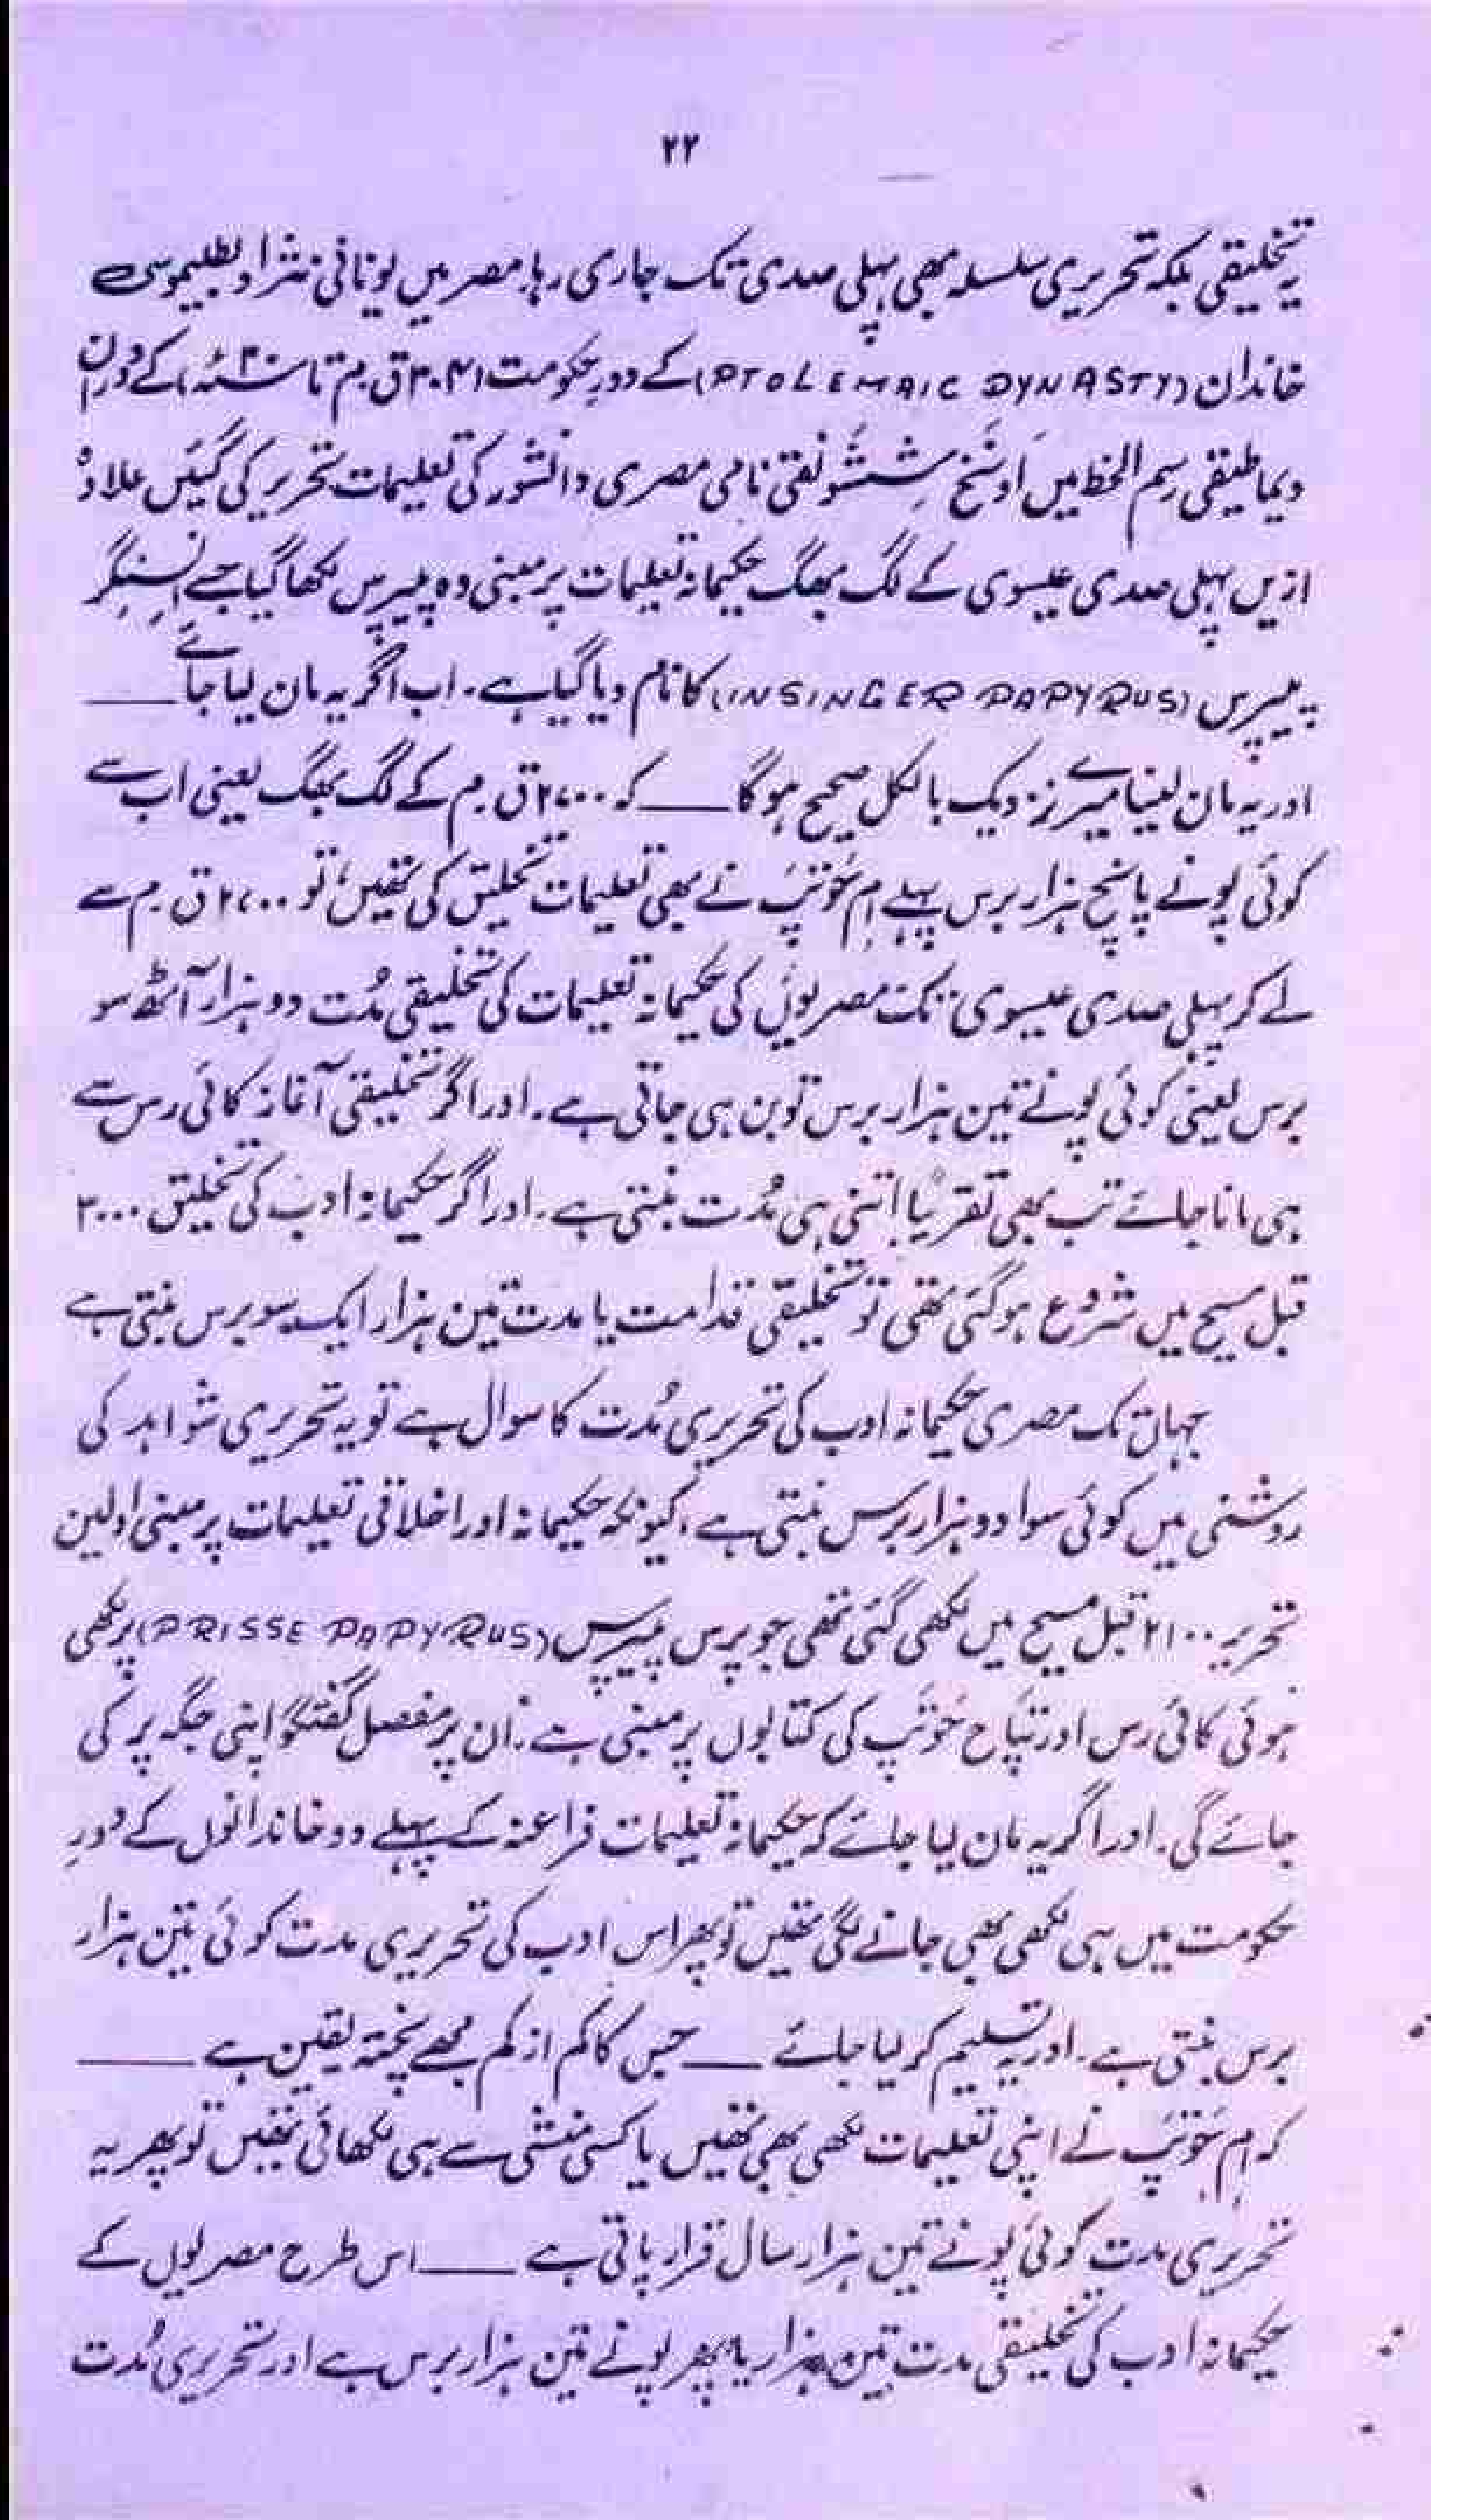 ۲۲
یہ تخلیقی بلکہ تحریری سلسلہ بھی پہلی صدی تک جاری رہا۔ مصر میں یونانی نژاد بطلیموسی
خاندان (PTOLEMAIC DYNASTY) کے دورِ حکومت (۳۰۴ ق۔م تا ۳۰ء) کے دوران
دیماطیقی رسم الخط میں اَونخ شششونقی نامی مصری دانشور کی تعلیمات تحریر کی گئیں علاوہ
ازیں پہلی صدی عیسوی کے لگ بھگ حکیمانہ تعلیمات پر مبنی وہ پیپرس لکھا گیا جسے اِنسِنگر
پیپرس (INSINGER PAPYRUS) کا نام دیا گیا ہے۔ اب اگر یہ مان لیا جائے ——
اور یہ مان لینا میرے نزدیک بالکل صحیح ہوگا —— کہ ۲۷۰۰ ق۔م کے لگ بھگ یعنی اب سے
کوئی پونے پانچ ہزار برس پہلے اِم حَوتپ نے بھی تعلیمات تخلیق کی تھیں تو ۲۷۰۰ ق۔م سے
لے کر پہلی صدی عیسوی تک مصریوں کی حکیمانہ تعلیمات کی تخلیقی مُدت دو ہزار آٹھ سو
برس یعنی کوئی پونے تین ہزار برس تو بن ہی جاتی ہے۔ اور اگر تخلیقی آغاز کائی رس سے
ہی مانا جائے تب بھی تقریباً اتنی ہی مُدت بنتی ہے۔ اور اگر حکیمانہ ادب کی تخلیق ۳۰۰۰
قبل مسیح میں شروع ہوگئی تھی تو تخلیقی قدامت یا مدت تین ہزار ایک سو برس بنتی ہے
جہاں تک مصری حکیمانہ ادب کی تحریری مُدت کا سوال ہے تو یہ تحریری شواہد کی
روشنی میں کوئی سوا دو ہزار برس بنتی ہے، کیونکہ حکیمانہ اور اخلاقی تعلیمات پر مبنی اولین
تحریر ۲۱۰۰ قبل مسیح میں لکھی گئی تھی جو پرس پیپرس (PRISSE PAPYRUS) پر لکھی
ہوئی کائی رس اور تپاح حَوتپ کی کتابوں پر مبنی ہے۔ ان پر مفصل گفتگو اپنی جگہ پر کی
جائے گی۔ اور اگر یہ مان لیا جائے کہ حکیمانہ تعلیمات فراعنہ کے پہلے دو خاندانوں کے دورِ
حکومت میں ہی لکھی بھی جانے لگی تھیں تو پھر اس ادب کی تحریری مدت کوئی تین ہزار
برس بنتی ہے۔ اور یہ تسلیم کر لیا جائے —— جس کا کم از کم مجھے پختہ یقین ہے ——
کہ اِم حَوتپ نے اپنی تعلیمات لکھی بھی تھیں یا کسی منشی سے ہی لکھائی تھیں تو پھر یہ
تحریری مدت کوئی پونے تین ہزار سال قرار پاتی ہے —— اس طرح مصریوں کے
حکیمانہ ادب کی تخلیقی مدت تین ہزار یا پھر پونے تین ہزار برس ہے اور تحریری مُدت